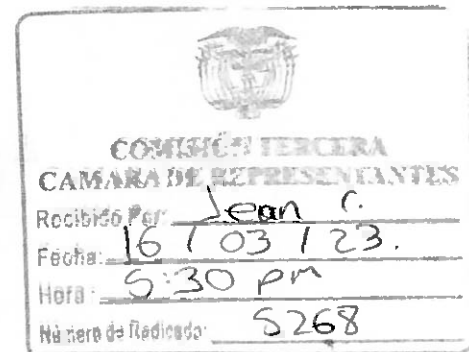 COMISIÓN TERCERA
CAMARA DE REPRESENTANTES
Recibido Por: Jean C.
Fecha: 16 / 03 / 23.
Hora: 5:30 pm
Número de Radicado: 5268